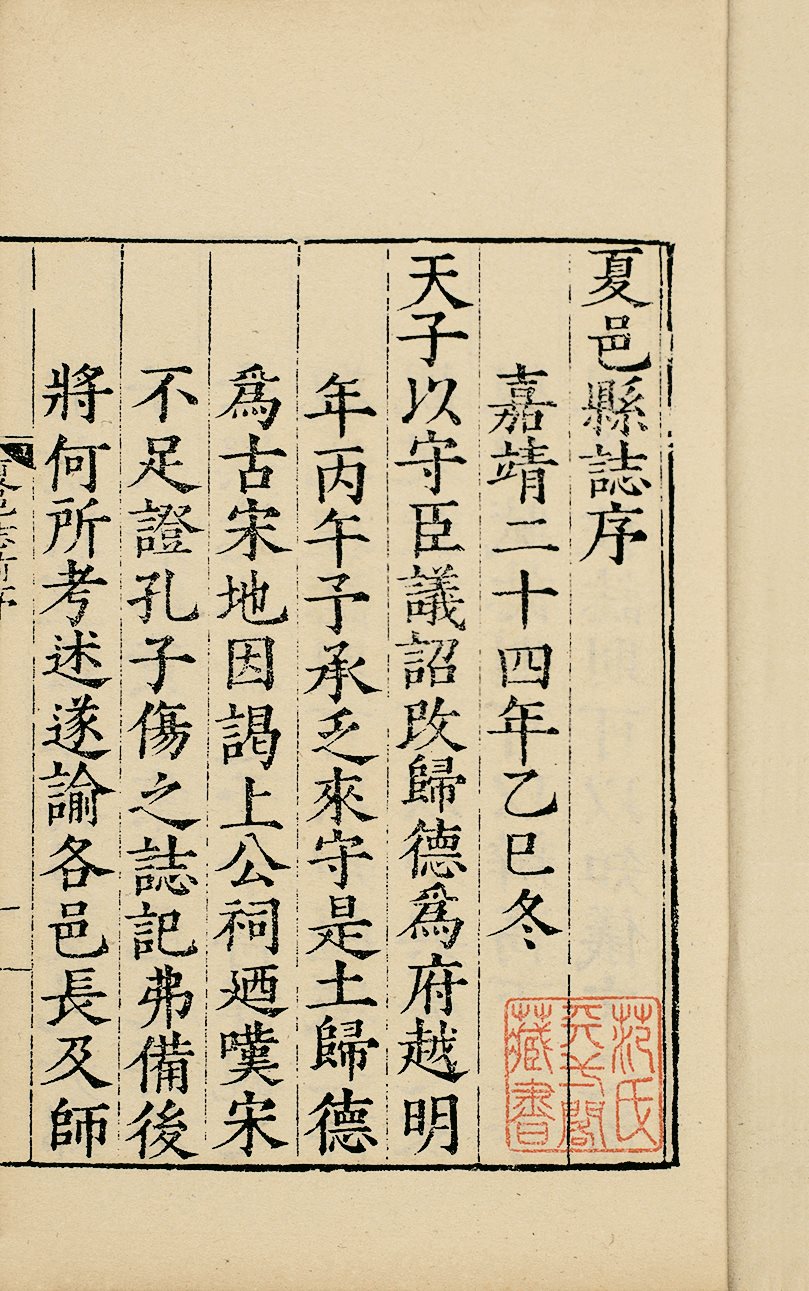 夏邑縣誌序
嘉靖二十四年乙巳冬
天子以守臣議詔改歸德為府越明
年丙午予承乏來守是土歸德
為古宋地因謁上公祠廼嘆宋
不足證孔子傷之誌記弗備後
將何所考述遂諭各邑長及師
范氏天一閣藏書